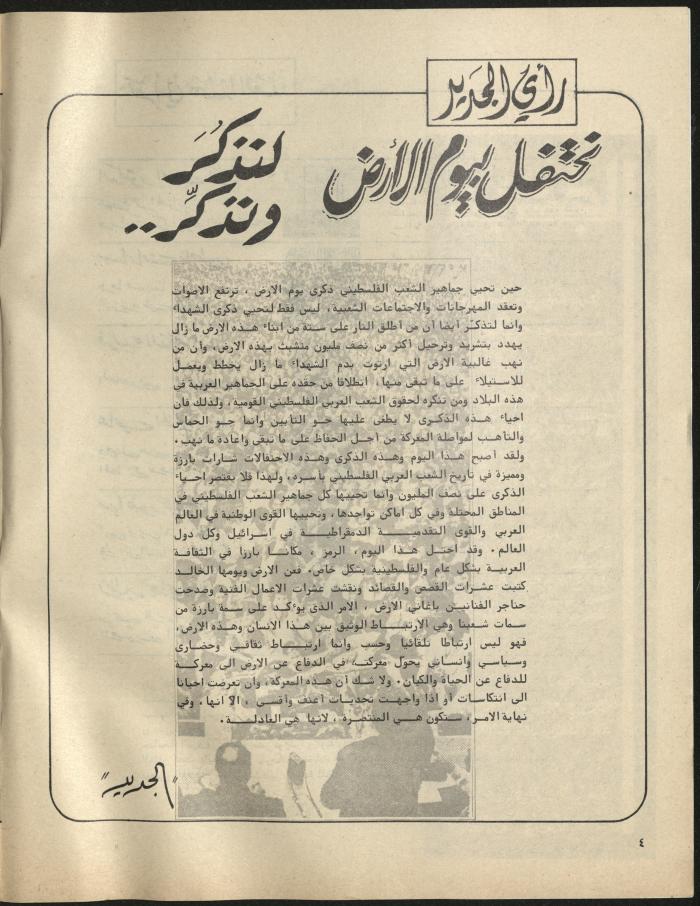 رأي الجديد
نحتفل بيوم الأرض
لنذكُرَ
ونذكِّر..
حين تحيي جماهير الشعب الفلسطيني ذكرى يوم الارض ، ترتفع الاصوات
وتعقد المهرجانات والاجتماعات الشعبية، ليس فقط لتحيي ذكرى الشهداء
وانما لتذكّر أيضا أن من أطلق النار على ستة من ابناء هذه الارض ما زال
يهدد بتشريد وترحيل أكثر من نصف مليون متشبث بهذه الارض، وأن من
نهب غالبية الارض التي ارتوت بدم الشهداء ما زال يخطط ويعمل
للاستيلاء على ما تبقى منها، انطلاقا من حقده على الجماهير العربية في
هذه البلاد ومن تنكره لحقوق الشعب العربي الفلسطيني القومية، ولذلك فان
احياء هذه الذكرى لا يطغى عليها جو التأبين وانما جو الحماس
والتأهب لمواصلة المعركة من اجل الحفاظ على ما تبقى واعادة ما نهب .
ولقد أصبح هذا اليوم وهذه الذكرى وهذه الاحتفالات شارات بارزة
ومميزة في تاريخ الشعب العربي الفلسطيني بأسره، ولهذا فلا يقتصر احياء
الذكرى على نصف المليون وانما تحييها كل جماهير الشعب الفلسطيني في
المناطق المحتلة وفي كل اماكن تواجدها، وتحييها القوى الوطنية في العالم
العربي والقوى التقدمية الدمقراطية في اسرائيل وكل دول
العالم . وقد احتل هذا اليوم، الرمز ، مكانا بارزا في الثقافة
العربية بشكل عام والفلسطينية بشكل خاص. فعن الارض ويومها الخالد
كتبت عشرات القصص والقصائد ونقشت عشرات الاعمال الفنية وصدحت
حناجر الفنانين بأغاني الارض ، الامر الذي يؤكد على سمة بارزة من
سمات شعبنا وهي الارتباط الوثيق بين هذا الانسان وهذه الارض،
فهو ليس ارتباطا تلقائيا وحسب وانما ارتباط ثقافي وحضاري
وسياسي وانساني يحول معركته في الدفاع عن الارض الى معركة
للدفاع عن الحياة والكيان. ولا شك أن هذه المعركة، وأن تعرضت احيانا
الى انتكاسات أو اذا واجهت تحديات أعنف وأقسى ، الا انها، وفي
نهاية الامر، ستكون هي المنتصرة ، لانها هي العادلة .
"الجديد"
٤